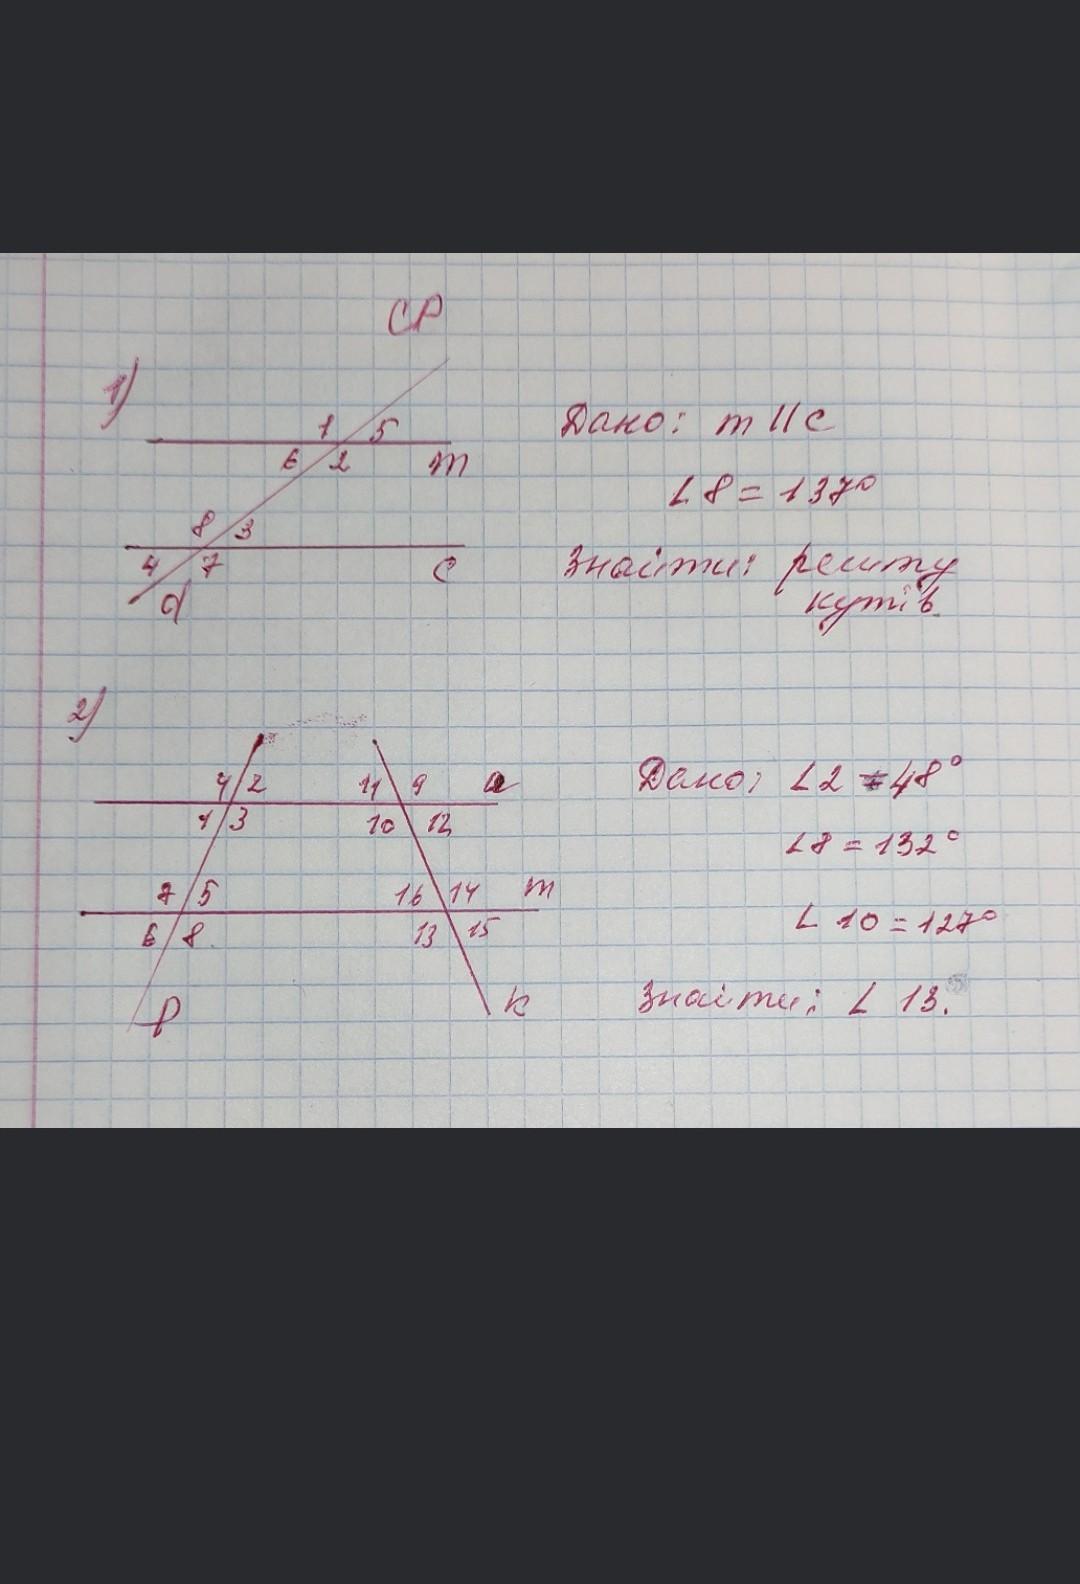 СР
1)
1 5
6 2 m
8 3
4 7 c
d
Дано: m || c
∠8 = 137°
Знайти: решту
кутів.
2)
4 2 11 9 a
1 3 10 12
7 5 16 14 m
6 8 13 15
p k
Дано: ∠2 = 48°
∠8 = 132°
∠10 = 127°
Знайти: ∠13.